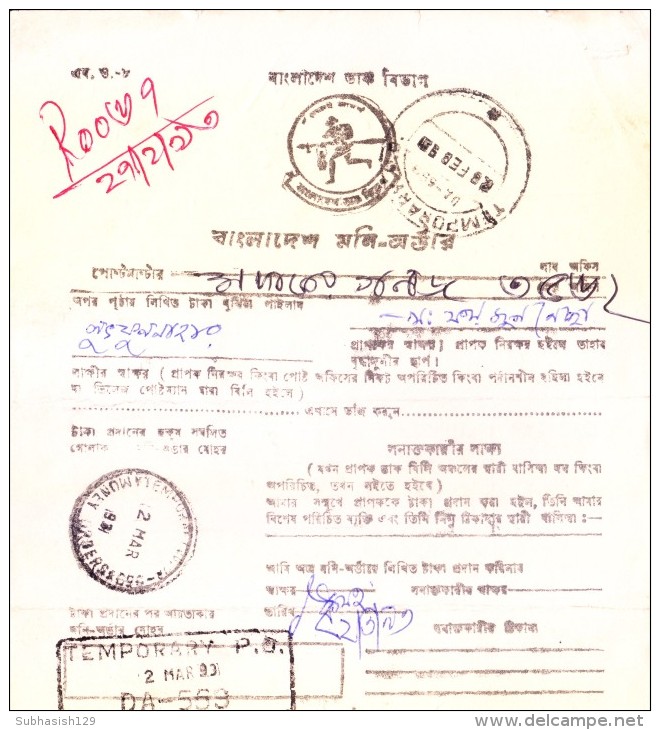 এম. ও.-৮
বাংলাদেশ ডাক বিভাগ
২৭/২/৯৩
TEMPORARY
28 FEB 93
বাংলাদেশ মনি-অর্ডার
পোস্টমাস্টার
সাব অফিস
অপর পৃষ্ঠায় লিখিত টাকা বুঝিয়া পাইলাম
প্রাপকের স্বাক্ষর] প্রাপক নিরক্ষর হইলে তাহার
বৃদ্ধাঙ্গুলীর ছাপ।
সাক্ষীর স্বাক্ষর ( প্রাপক নিরক্ষর কিংবা পোষ্ট অফিসের নিকট অপরিচিত কিংবা পর্দানশীল মহিলা হইলে
বা ভিলেজ পোষ্টম্যান দ্বারা বিলি হইলে )
এখানে ভাঁজ করুন
টাকা প্রদানের হুকুম সম্বলিত
গোলাকার মনি-অর্ডার মোহর
সনাক্তকারীর সাক্ষ্য
( যখন প্রাপক ডাক বিলি অঞ্চলের স্থায়ী বাসিন্দা নয় কিংবা
অপরিচিত, তখন লইতে হইবে )
আমার সম্মুখে প্রাপককে টাকা প্রদান করা হইল, তিনি আমার
বিশেষ পরিচিত ব্যক্তি এবং তিনি নিম্ন ঠিকানার স্থায়ী বাসিন্দা :—
2 MAR
93
আমি অত্র মনি-অর্ডারে লিখিত টাকা প্রদান করিলাম
স্বাক্ষর
সনাক্তকারীর স্বাক্ষর
তারিখ
২/৩/৯৩
টাকা প্রদানের পর আয়তাকার
মনি-অর্ডার মোহর
সনাক্তকারীর ঠিকানা
TEMPORARY P.O.
2 MAR 93
DA-559
Subhasish129
delcampe.net